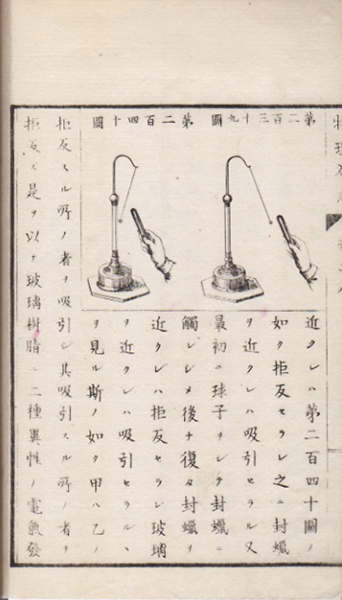 第二百三十九圖
第二百四十圖
近クレハ第二百四十圖ノ
如ク拒反セラレ之ニ封蠟
ヲ近クレハ吸引セラル又
最初ニ球子ヲシテ封蠟ニ
觸レシメ後チ復タ封蠟ヲ
近クレハ拒反セラレ玻璃
ヲ近クレハ吸引セラルヽ
ヲ見ル斯ノ如ク甲ハ乙ノ
拒反スル所ノ者ヲ吸引シ其吸引スル所ノ者ヲ
拒反ス是ヲ以テ玻璃樹脂ニ二種異性ノ電氣發